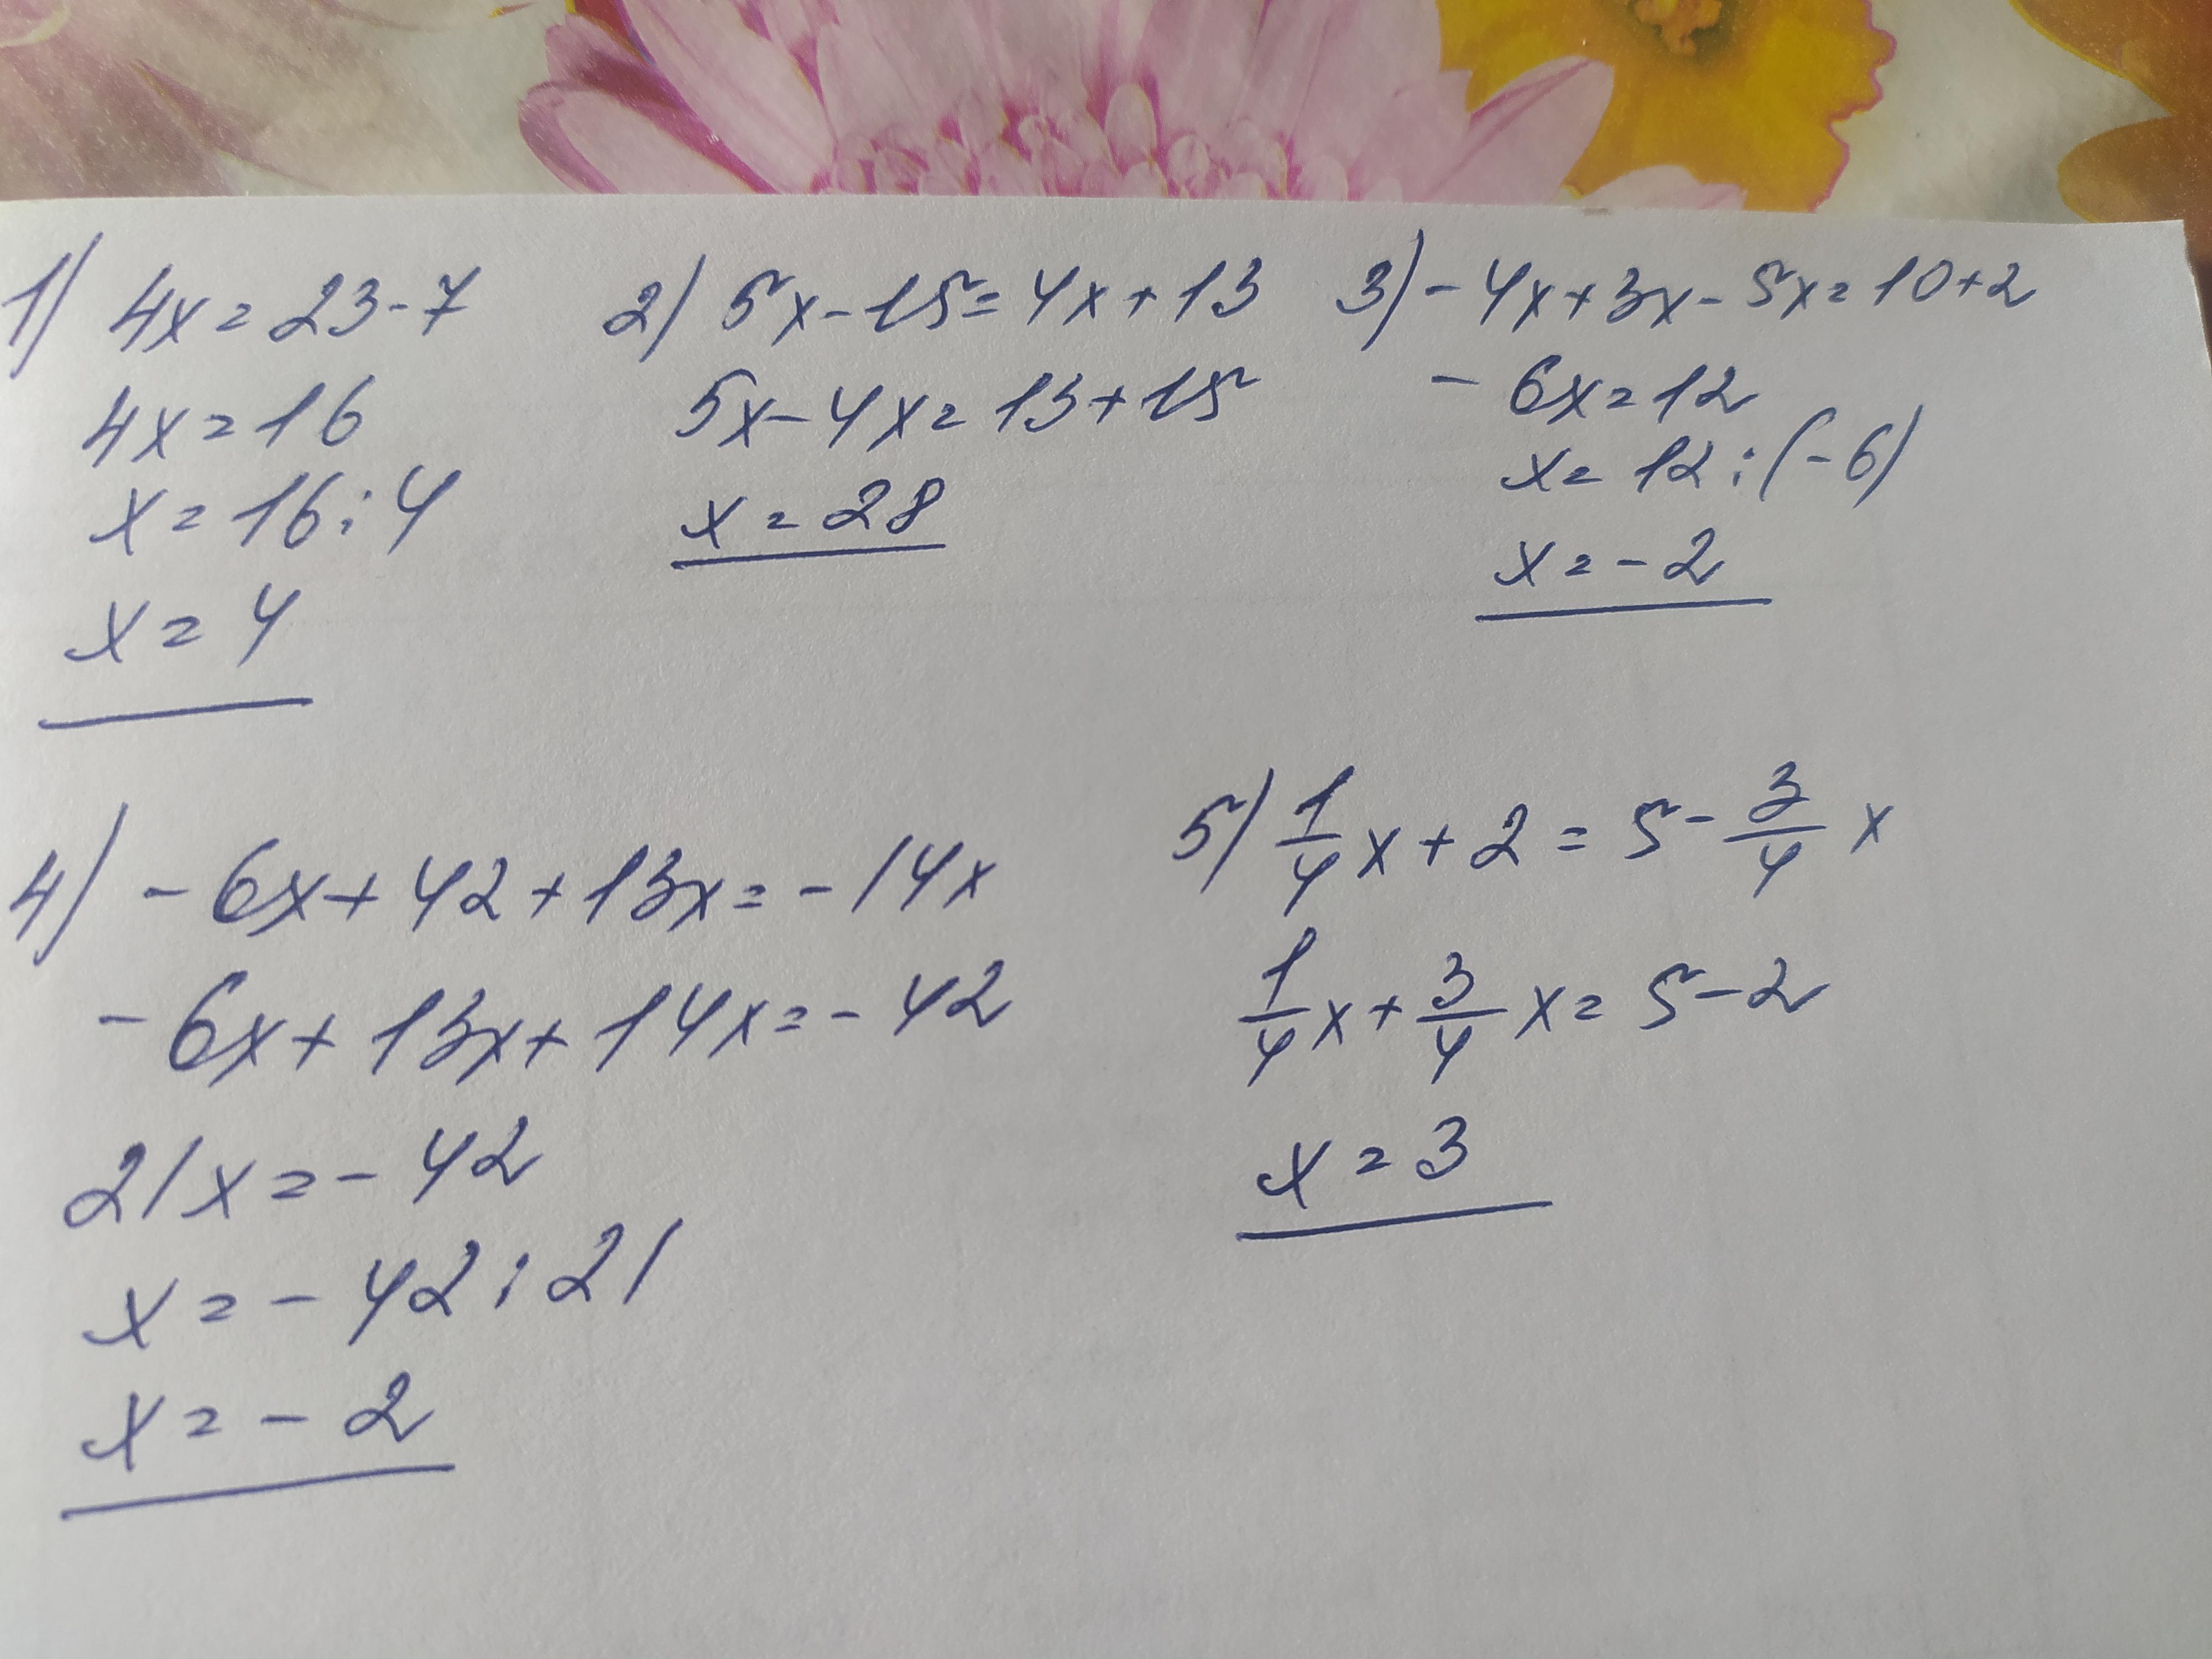 1) 4x=23-7
4x=16
x=16:4
x=4
2) 5x-15=4x+13
5x-4x=13+15
x=28
3) -4x+3x-5x=10+2
-6x=12
x=12:(-6)
x=-2
4) -6x+42+13x=-14x
-6x+13x+14x=-42
21x=-42
x=-42:21
x=-2
5) 1/4 x+2=5-3/4 x
1/4 x+3/4 x=5-2
x=3